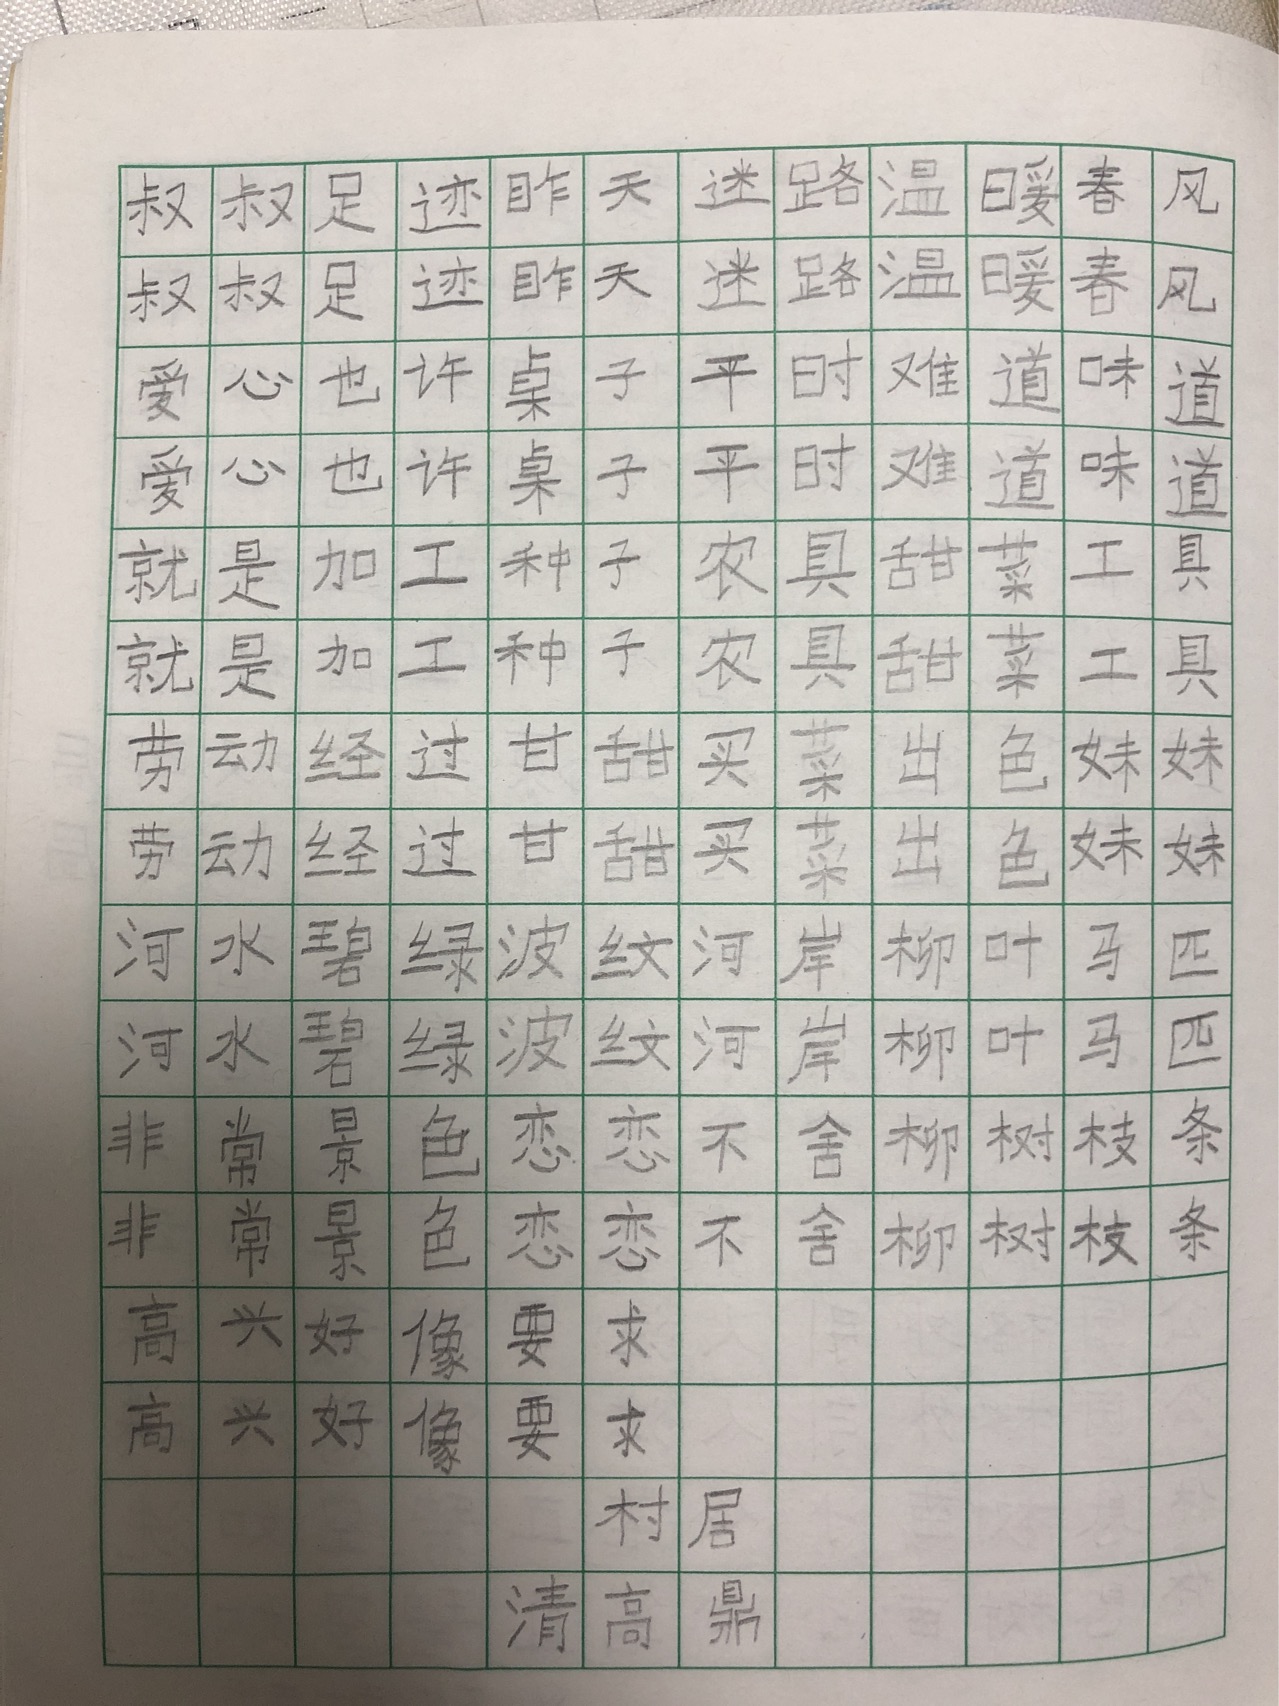 叔叔足迹昨天迷路温暖春风
叔叔足迹昨天迷路温暖春风
爱心也许桌子平时难道味道
爱心也许桌子平时难道味道
就是加工种子农具甜菜工具
就是加工种子农具甜菜工具
劳动经过甘甜买菜出色妹妹
劳动经过甘甜买菜出色妹妹
河水碧绿波纹河岸柳叶马匹
河水碧绿波纹河岸柳叶马匹
非常景色恋恋不舍柳树枝条
非常景色恋恋不舍柳树枝条
高兴好像要求
高兴好像要求
村居
清高鼎